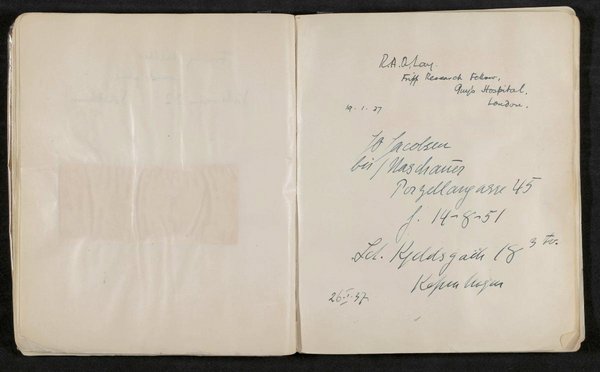 R.A.Q. Lay.
Research Fellow.
Guy's Hospital.
London.
19.1.37
Jacobsen
bei / Maschauer
Porzellangasse 45
J. 14-8-51
Kjeldsgade 18 3 tv.
Kopenhagen
26 I 37